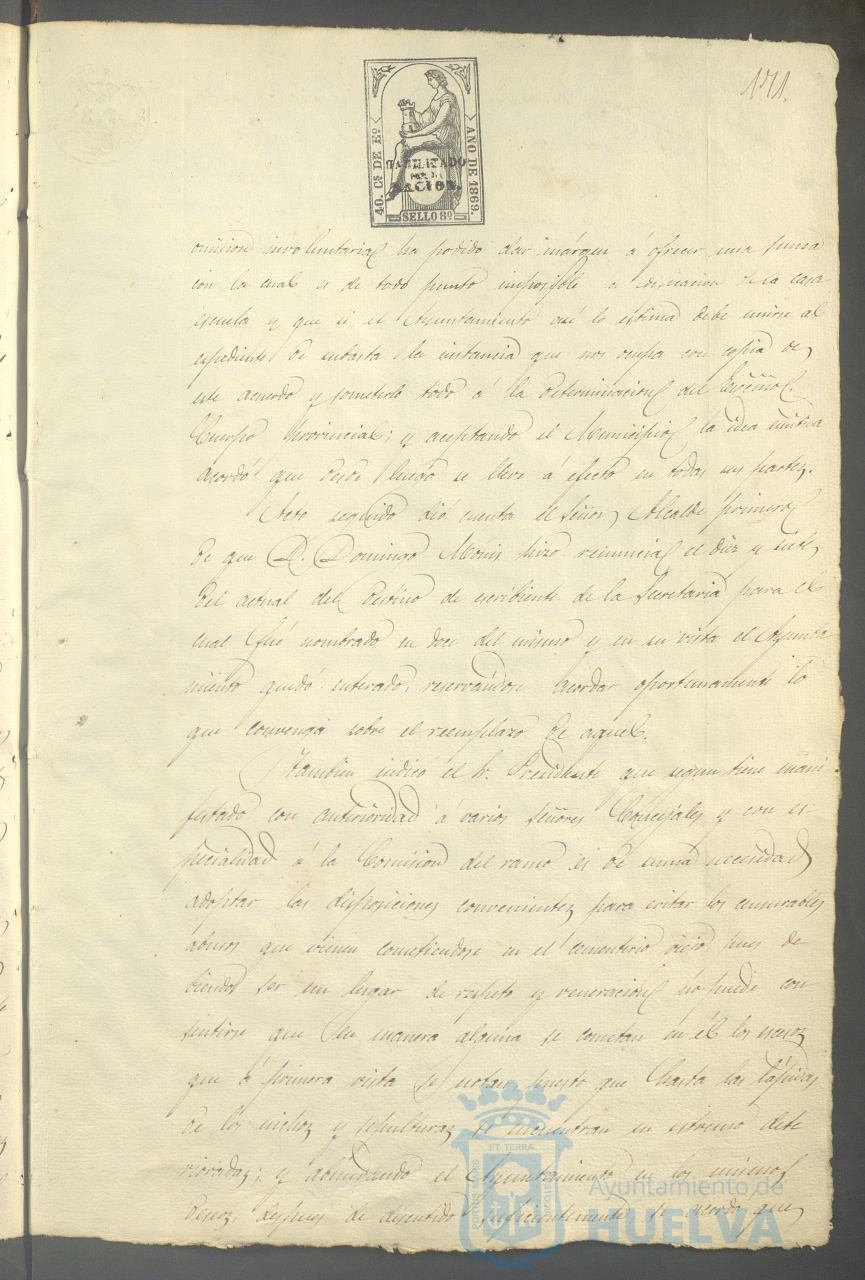 171.
40. Cs DE Eo
AÑO DE 1869.
HABILITADO
POR LA
NACION.
SELLO 8º
omision involuntaria ha podido dar márgen á ofrecer una suma
con la cual es de todo punto imposible la edificacion de la casa
escuela y que si el Ayuntamiento asi lo estima debe unirse al
espediente de subasta la instancia que nos ocupa con copia de
este acuerdo y someterlo todo á la determinacion del Excmo.
Cuerpo Provincial; y aceptando el Municipio la idea emitida
acordó que desde luego se lleve á efecto en todas sus partes.
Acto seguido dió cuenta el Señor Alcalde primero
de que D. Domingo Monis hizo renuncia el diez y siete
del actual del destino de escribiente de la Secretaria para el
cual fué nombrado en doce del mismo y en su vista el Ayunta
miento quedó enterado, reservandose acordar oportunamente lo
que convenga sobre el reemplazo de aquel.
Tambien indicó el Sr. Presidente que segun tiene mani-
festado con anterioridad á varios Señores Concejales y con es-
pecialidad á la Comision del ramo es de suma necesidad
adoptar las disposiciones convenientes para evitar los censurables
abusos que vienen cometiendose en el cementerio viejo, pues de
biendo ser un lugar de respeto y veneracion no puede con
sentirse que en manera alguna se cometan en él los escesos
que á primera vista se notan puesto que hasta las lápidas
de los nichos y sepulturas se encuentran en estremo dete
rioradas; y abundando el Ayuntamiento en los mismos
deseos, despues de discutido suficientemente se acordó que
ET TERRA
Ayuntamiento de
HUELVA